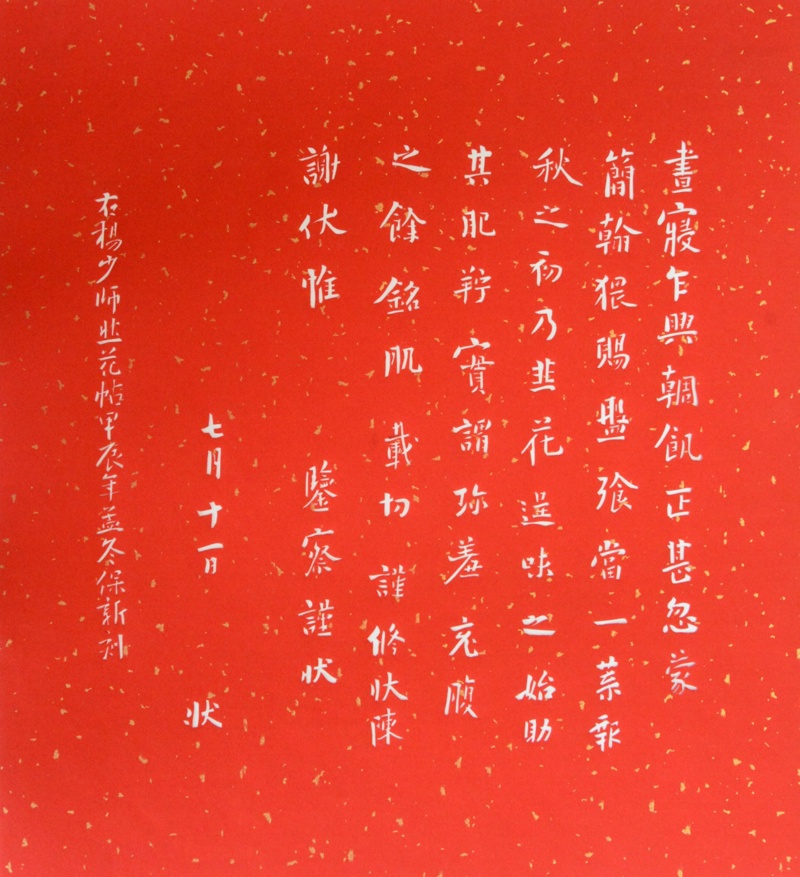 晝寢乍興輖飢正甚忽蒙
簡翰猥賜盤飡當一葉報
秋之初乃韭花逞味之始助
其肥羜實謂珍羞充腹
之餘銘肌載切謹修狀陳
謝伏惟 鑒察謹狀
七月十一日 狀
右楊少師韭花帖甲辰年孟冬保新刻